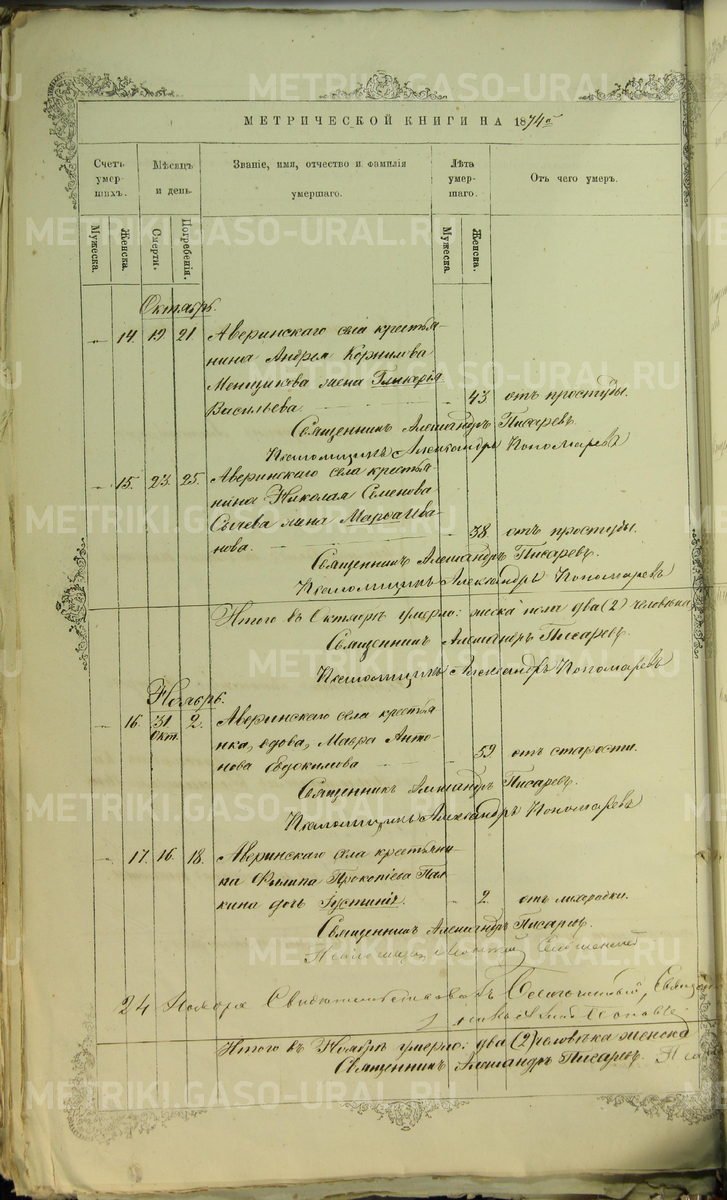 МЕТРИЧЕСКОЙ КНИГИ НА 1874й
Счетъ умер-шихъ. Мѣсяцъ и день. Званіе, имя, отчество и фамилія умершаго. Лѣта умер-шаго. Отъ чего умеръ.
Мужеска. Женска. Смерти. Погребенія. Мужеска. Женска.
Октябрь.
14. 19. 21. Аверинскаго села крестья-
нина Андрея Корнилова
Менщикова жена Гликерія
Васильева. 43 отъ простуды.
Священникъ Александръ Писаревъ.
Псаломщикъ Александръ Пономаревъ
15. 23. 25. Аверинскаго села крестья
нина Николая Семенова
Сычева жена Марѳа Ива-
нова. 38. отъ простуды.
Священникъ Александръ Писаревъ.
Псаломщикъ Александръ Пономаревъ
Итого въ Октябрѣ умерло: женска пола два (2) человѣка
Священникъ Александръ Писаревъ.
Псаломщикъ Александръ Пономаревъ
Ноябрь.
16. 31 Окт. 2. Аверинскаго села крестья
нка, вдова, Мавра Анто-
нова Евдокимова 59 отъ старости.
Священникъ Александръ Писаревъ.
Псаломщикъ Александръ Пономаревъ
17. 16. 18. Аверинскаго села крестьяни-
на Филипа Прокопіева Пал
кина дочь Іустинія. 2. отъ лихорадки.
Священникъ Александръ Писаревъ.
24 Ноября Свидѣтельствовалъ Благочинный, Священ
Итого въ Ноябрѣ умерло: два (2) человѣка женска
Священникъ Александръ Писаревъ.
METRIKI.GASO-URAL.RU